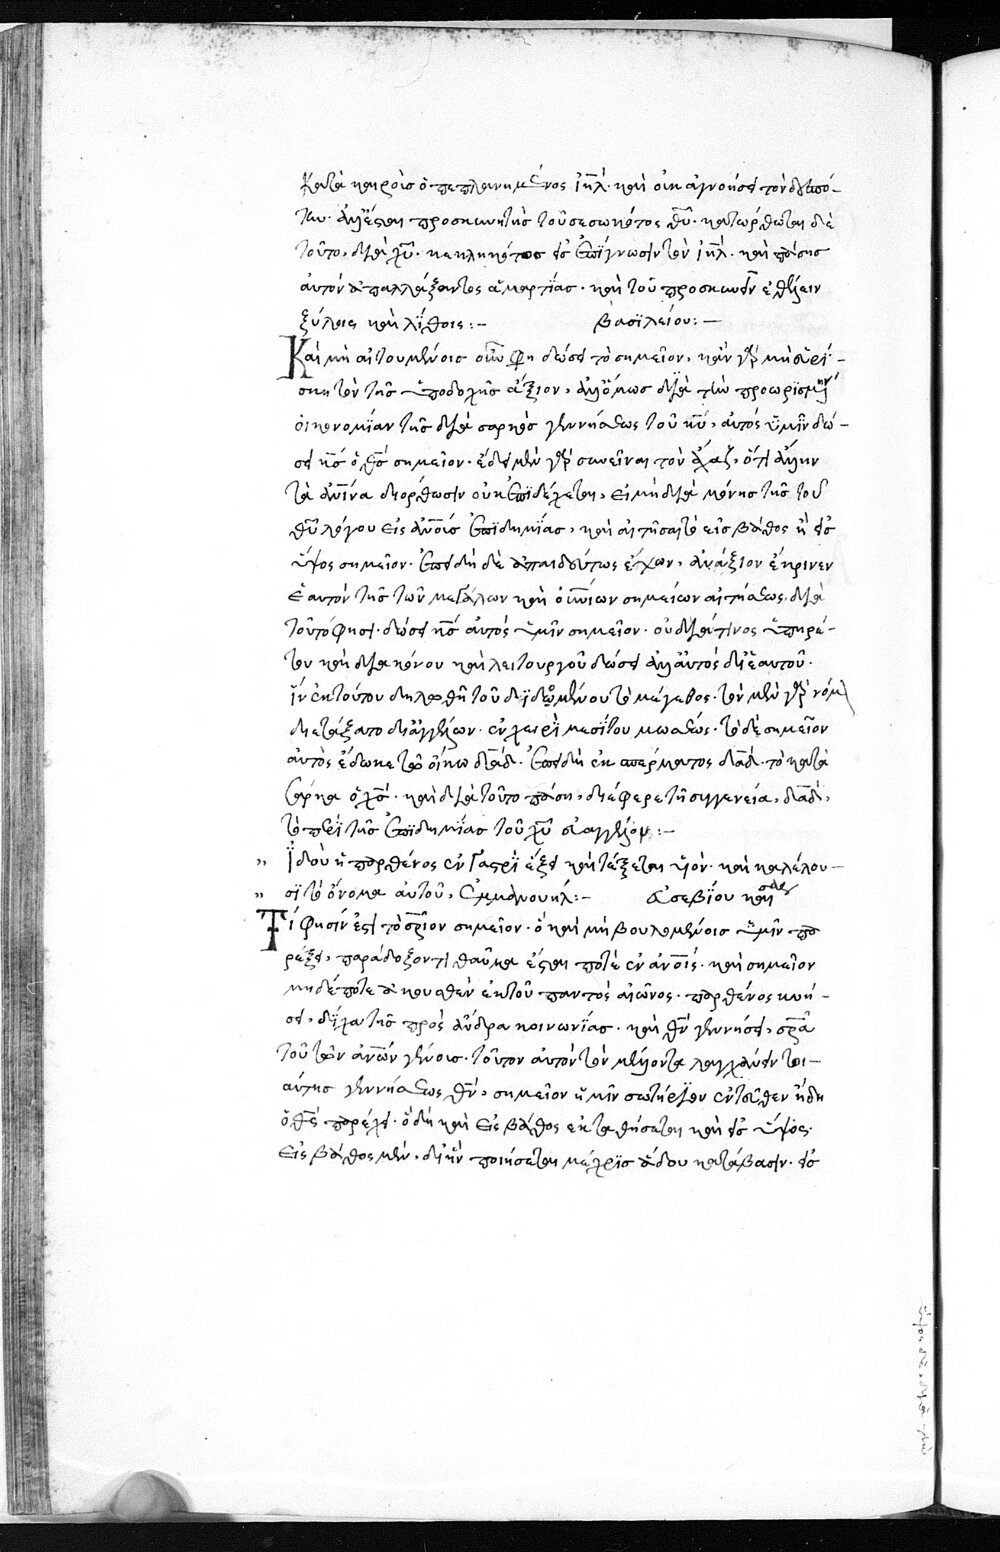 κατὰ καιροὺς ὁ πεπλανημένος ἰηλ· καὶ οὐκ ἀγνοήσει τὸν δεσπό-
την· ἀλλ' ἔσται προσκυνητὴς τοῦ σεσωκότος θυ· κατωρθωται δὲ
τοῦτο, διὰ χυ· κεκληκότος εἰς ἐπίγνωσιν τὸν ἰηλ· καὶ πάσης
αὐτὸν ἀπαλλάξαντος ἁμαρτίας· καὶ τοῦ προσκυνεῖν ἐθέλειν
ξύλοις καὶ λίθοις:— βασιλείου:—
Καὶ μὴ αἰτουμένοις οὖν φη δώσει τὸ σημεῖον, κἂν γὰρ μὴ εὑρί-
σκηται τῆς ὑποδοχῆς ἄξιον, ἀλλ' ὅμως διὰ τὴν προωρισμένην
οἰκονομίαν τῆς διὰ σαρκὸς γεννήσεως τοῦ κυ, αὐτὸς ὑμῖν δώ-
σει κς ὁ θς σημεῖον· ἔδει μὲν γὰρ συνεῖναι τὸν ἄχαζ, ὅτι ἄλλην
τὰ ἀνινα διόρθωσιν οὐκ ἐπιδέχεται, εἰ μὴ διὰ μόνης τῆς τοῦ
θυ λόγου εἰς ἀνους ἐπιδημίας, καὶ αἰτήσαι τὸ εἰς βάθος ἢ εἰς
ὕψος σημεῖον· ἐπειδὴ δὲ ἀπαιδεύτως ἔχων, ἀνάξιον ἔκρινεν
ἑαυτὸν τῆς τῶν μεγάλων καὶ οὐνίων σημείων αἰτήσεως, διὰ
τοῦτό φησι· δώσει κς αὐτὸς ὑμῖν σημεῖον· οὐ διά τινος ὑπηρέ-
του καὶ διακόνου καὶ λειτουργοῦ δώσει ἀλλ' αὐτὸς δι' ἑαυτοῦ·
ἵν' ἐκ τούτου δηλωθῇ τοῦ διδομένου τὸ μέγεθος· τὸν μὲν γὰρ νόμον
διετάξατο δι' ἀγγέλων· ἐν χειρὶ μεσίτου μωσέως· τὸ δὲ σημεῖον
αὐτὸς ἔδωκε τῷ οἴκῳ δαδ· ἐπειδὴ ἐκ σπέρματος δαδ· τὸ κατὰ
σάρκα ὁ χς· καὶ διὰ τοῦτο πάση, διέφερε τῇ συγγενείᾳ, δαδ,
τὸ περὶ τῆς ἐπιδημίας τοῦ χυ εὐαγγέλιον:—
" ἰδοὺ ἡ παρθένος ἐν γαστρὶ ἕξει καὶ τέξεται υἱόν· καὶ καλέσου-
" σι τὸ ὄνομα αὐτοῦ, ἐμμανουήλ:— εὐσεβίου καισαρ
Τί φησίν ἐστι τὸ σριον σημεῖον· ὃ καὶ μὴ βουλομένοις ὑμῖν πα-
ρέξει, παράδοξον τι θαῦμα ἔσται ποτὲ ἐν ἀνοις· καὶ σημεῖον
μηδέποτε ἀκουσθὲν ἐκ τοῦ παντὸς αἰῶνος· παρθένος κυή-
σει, δίχα τῆς πρὸς ἄνδρα κοινωνίας· καὶ θν γεννήσει, σρα
τοῦ τῶν ἀνων γένους· τοῦτον αὐτὸν τὸν μέλλοντα λαγχάνειν τοι-
αύτης γεννήσεως θν, σημεῖον ἡμῖν σωτήριον ἐντεῦθεν ἤδη
ὁ θς παρέχει· ὃ δὴ καὶ εἰς βάθος ἐκταθήσεται καὶ εἰς ὕψος·
εἰς βάθος μὲν, δι' ἣν ποιήσεται μέχρις ᾅδου κατάβασιν· εἰς